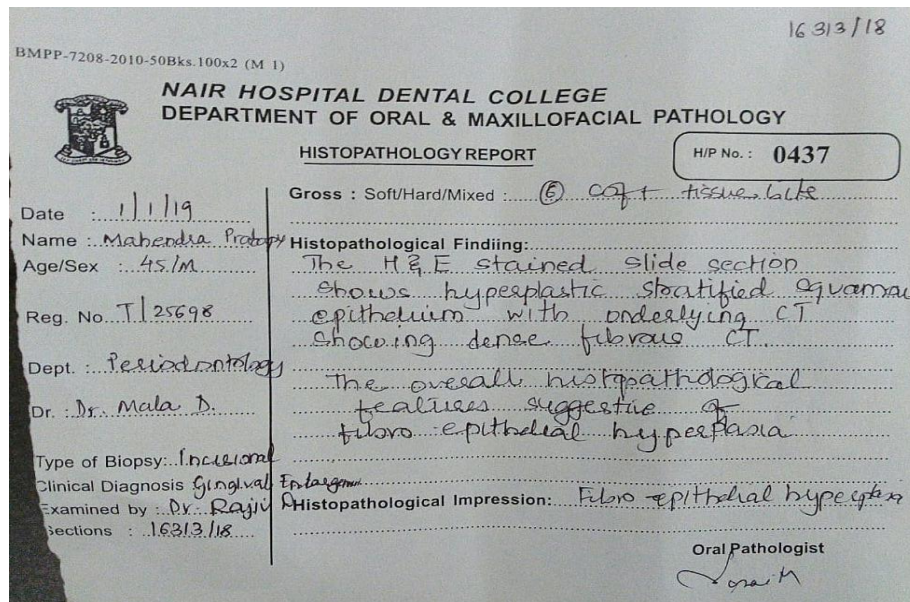 16313/18
BMPP-7208-2010-50Bks.100x2 (M 1)
NAIR HOSPITAL DENTAL COLLEGE
DEPARTMENT OF ORAL & MAXILLOFACIAL PATHOLOGY
HISTOPATHOLOGY REPORT
H/P No. : 0437
Date : 1/1/19
Name : Mahendra Pratap
Age/Sex : 45/M
Reg. No. T/25698
Dept. : Periodontology
Dr. : Dr. Mala D.
Type of Biopsy: Incisional
Clinical Diagnosis Gingival Enlargement
Examined by : Dr. Rajiv D
Sections : 16313/18
Gross : Soft/Hard/Mixed : soft tissue
Histopathological Findiing:
The H & E stained slide section
shows hyperplastic stratified squamou
epithelium with underlying CT
showing dense fibrous CT.
The overall histopathological
features suggestive of
fibro-epithelial hyperplasia
Histopathological Impression: Fibro-epithelial hyperplasia
Oral Pathologist